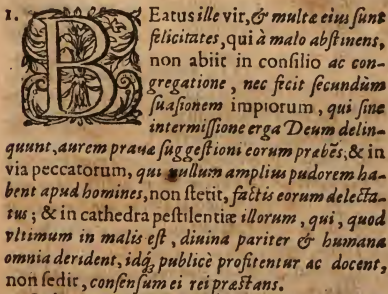 1. BEatus ille vir, & multæ eius sunt
felicitates, qui à malo abstinens,
non abiit in consilio ac con-
gregatione, nec fecit secundùm
suasionem impiorum, qui sine
intermissione erga Deum delin-
quunt, aurem prauæ suggestioni eorum præbẽs; & in
via peccatorum, qui nullum amplius pudorem ha-
bent apud homines, non stetit, factis eorum delecta-
tus; & in cathedra pestilentiæ illorum, qui, quod
vltimum in malis est, diuina pariter & humana
omnia derident, idq́; publicè profitentur ac docent,
non sedit, consensum ei rei præstans.